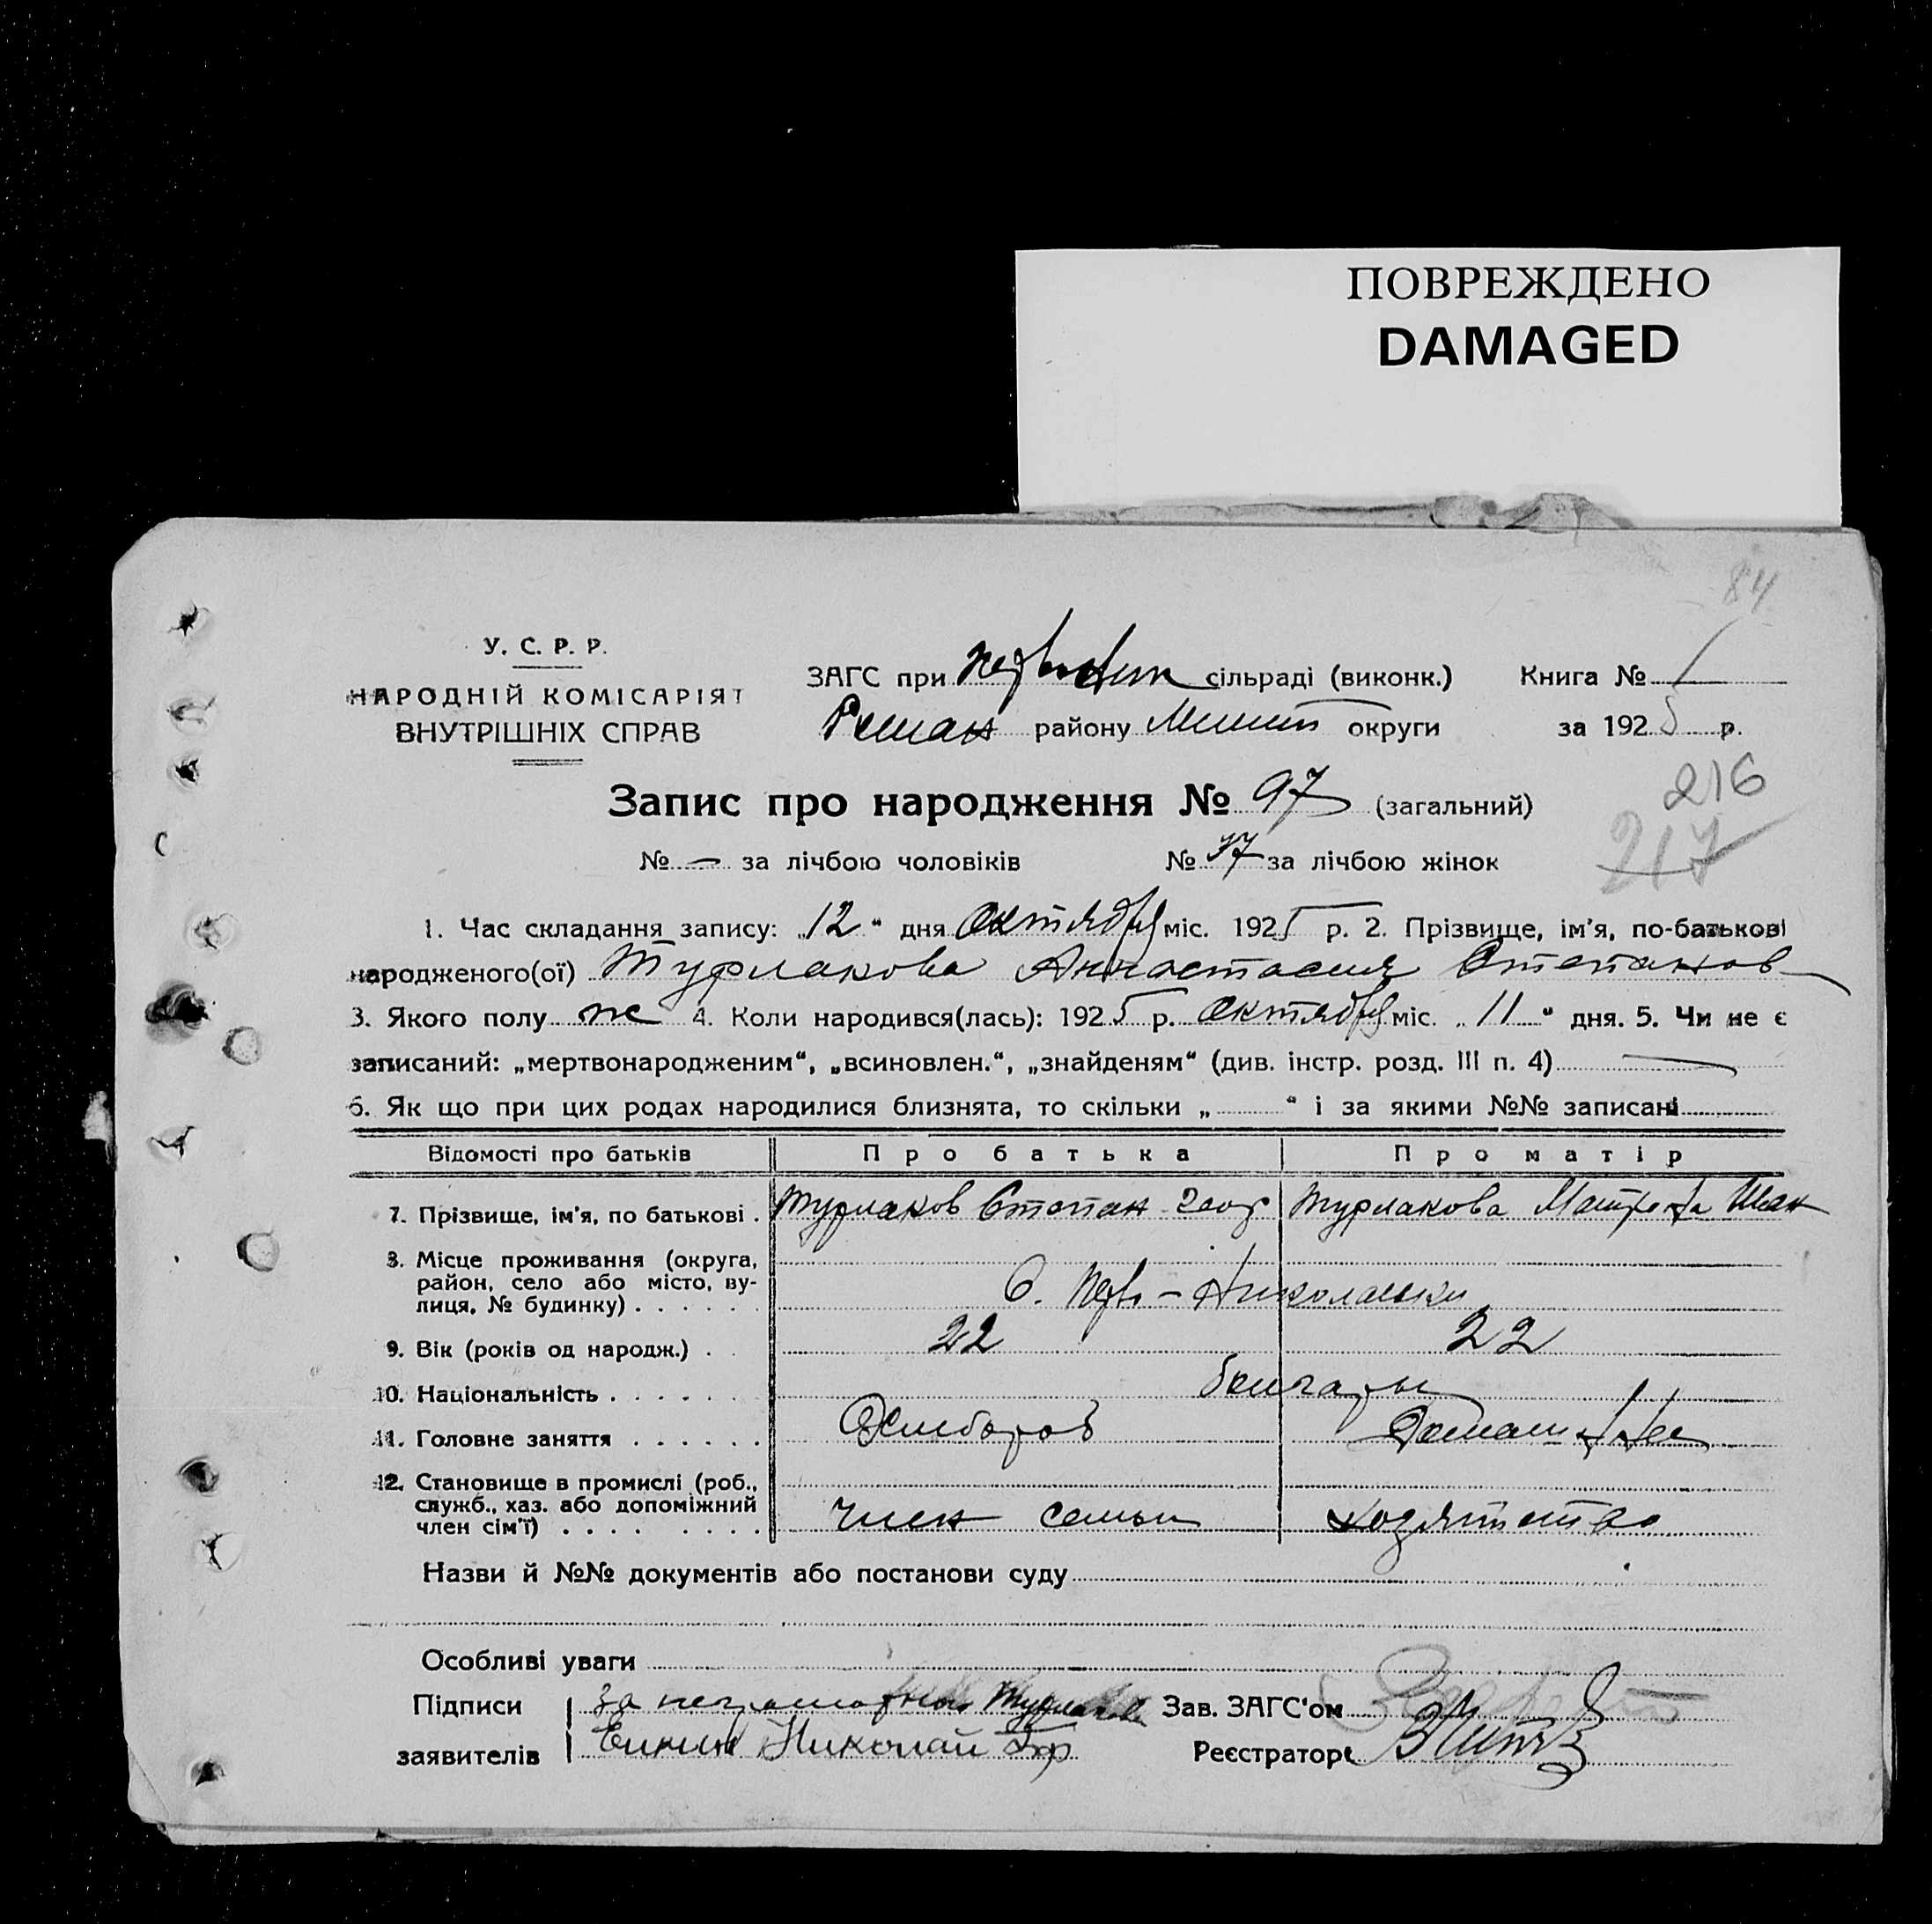 ПОВРЕЖДЕНО
DAMAGED
84
У. С. Р. Р.
НАРОДНІЙ КОМІСАРІЯТ
ВНУТРІШНІХ СПРАВ
ЗАГС при сільраді (виконк.) Книга № 1
району округи за 1925 р.
216
Запис про народження № 97 (загальний)
217
№ — за лічбою чоловіків № 37 за лічбою жінок
1. Час складання запису: „12“ дня Октября міс. 1925 р. 2. Прізвище, ім'я, по-батькові
народженого(ої) Турлакова Анастасия Степанов
3. Якого полу ж 4. Коли народився(лась): 1925 р. Октября міс. „11“ дня. 5. Чи не є
записаний: „мертвонародженим“, „всиновлен.“, „знайденям“ (див. інстр. розд. III п. 4) —
6. Як що при цих родах народилися близнята, то скільки „ “ і за якими №№ записані
Відомості про батьків Про батька Про матір
7. Прізвище, ім'я, по батькові . Турлаков Степан Турлакова Иван
8. Місце проживання (округа,
район, село або місто, ву-
лиця, № будинку) . . . . . . С. Перв-Николаевки
9. Вік (років од народж.) . . 22 22
10. Національність . . . . . . болгары
11. Головне заняття . . . . . . Хлебороб
12. Становище в промислі (роб.,
служб., хаз. або допоміжний
член сім'ї) . . . . . . . . член семьи
Назви й №№ документів або постанови суду
Особливі уваги
Підписи За неграмотного Турлакова Зав. ЗАГС'ом
заявителів Николай Реєстратор